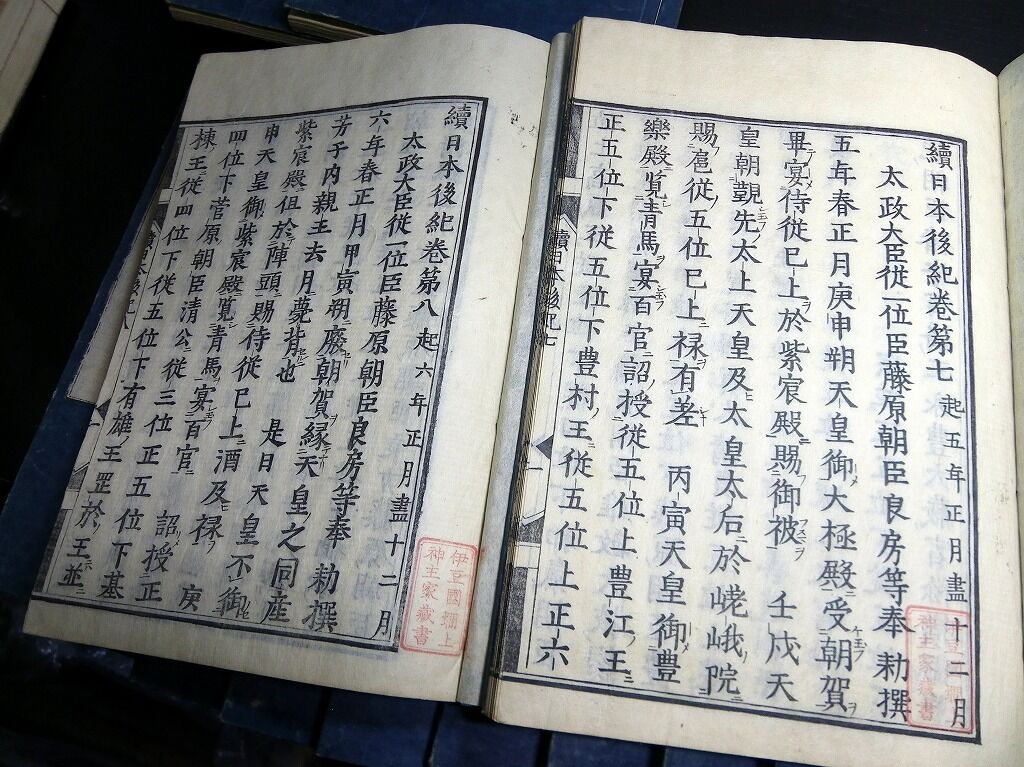 續日本後紀巻第七 起五年正月盡十二月
太政大臣從一位臣藤原朝臣良房等奉 勅撰
五年春正月庚申朔天皇御大極殿受朝賀
畢宴侍從已上於紫宸殿賜御被 壬戌天
皇朝覲先太上天皇及太皇太后於嵯峨院
賜扈從五位已上禄有差 丙寅天皇御豊
樂殿覧青馬宴百官詔授從五位上豊江王
正五位下從五位下豊村王從五位上正六
續日本後紀七
神主家蔵書
續日本後紀巻第八 起六年正月盡十二月
太政大臣從一位臣藤原朝臣良房等奉 勅撰
六年春正月甲寅朔廢朝賀縁天皇之同産
芳子内親王去月薨背也 是日天皇不御
紫宸殿但於陣頭賜侍從已上酒及禄 庚
申天皇御紫宸殿覧青馬宴百官 詔授正
四位下菅原朝臣清公從三位正五位下基
棟王從四位下從五位下有雄王罡於王並
續日本後紀八
伊豆國堋上
神主家蔵書